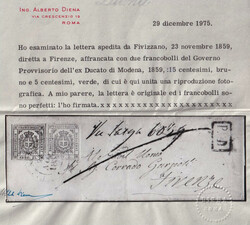 ING. ALBERTO DIENA
VIA CRESCENZIO 19
ROMA
29 dicembre 1975.
Ho esaminato la lettera spedita da Fivizzano, 23 novembre 1859,
diretta a Firenze, affrancata con due francobolli del Governo
Provvisorio dell'ex Ducato di Modena, 1859, 15 centesimi, bruno,
e 5 centesimi, verde, di cui è unita una riproduzione fotografica.
A mio parere, la lettera è originale ed i francobolli sono
perfetti: l'ho firmata.
Via Sarza
P.D
Firenze